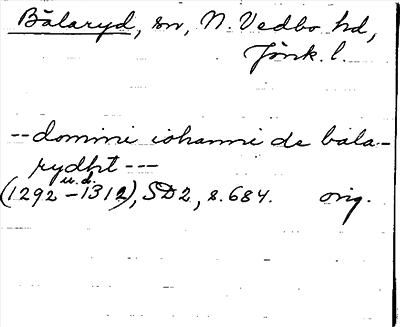 Bälaryd, sn, N. Vedbo hd,
Jönk. l.
-- domini iohanni de bala-
rydht ---
u.d.
(1292 - 1312), SD2, s. 684. orig.